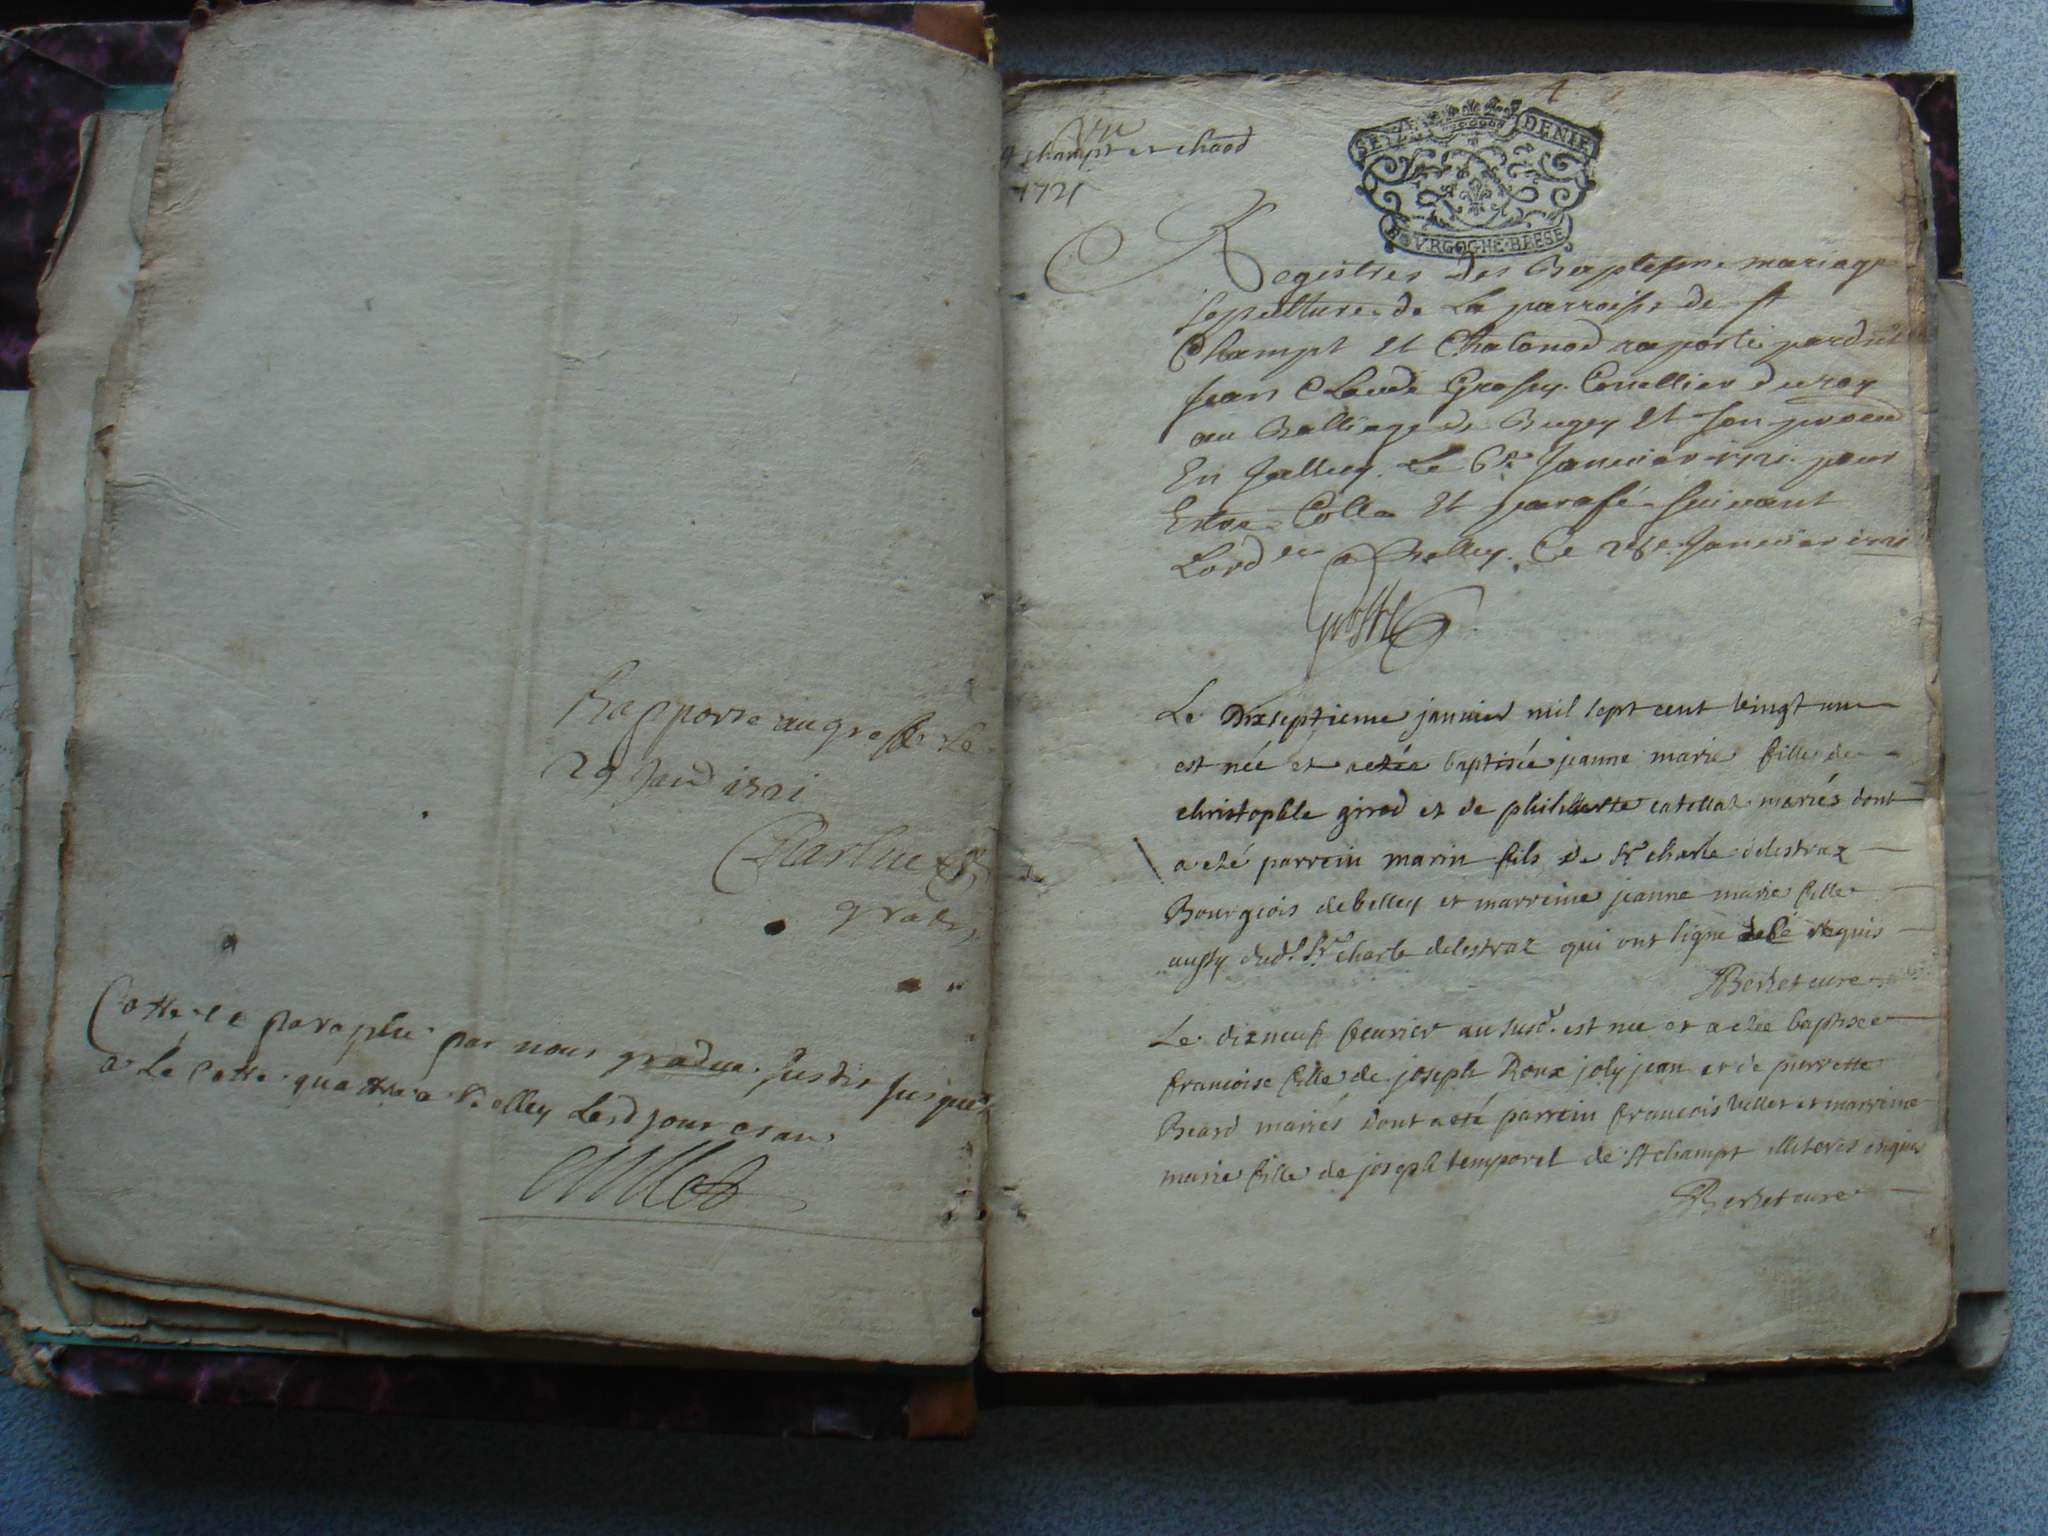 Rapporte au greffe le
29 Janv 1721
Cotte et paraphé par nous gradué
a la cotte quattre a Belley led jour et an
St champt et chaod
1721
SEIZE DENIE
BOVRGOGNE BRESE
Registres des Baptesme mariage
sepulture de La parroisse de st
Champt Et Chatonod raporté par
Jean Claude Conseillier du roy
au Balliage de Bugey Et son
En Le 6e Janvier 1721 pour
Estre Collé Et parafé suivant
Lord a Belley Ce Janvier 1721
Le Dixseptieme janvier mil sept cent vingt un
est née et a eté baptisée jeanne marie fille de
christophle girod et de philiberte catillaz mariés dont
a eté parrein marin fils de Sr charle delestraz
Bourgeois de belley et marreine jeanne marie fille
aussy dud. Sr charle delestraz qui ont signé requis
Berlet curé
Le dixneuf fevrier an susd. est nee et a eté baptisée
francoise fille de joseph Roux joly jean et de pierrette
Beard mariés Dont a eté parrein francois vellet et marreine
marie fille de joseph temporel de St champt illiterés enquis
Berlet curé